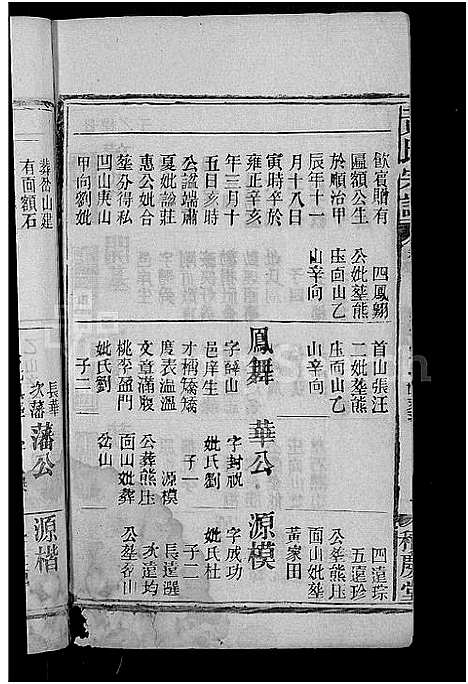 氏宗譜
飲賓贈有
匾額公生
於順治甲
辰年十一
月十八日
寅時卒於
雍正辛亥
年三月十
五日亥時
公諡端肅
夏妣諡莊
惠公妣合
塟分得私
凹山庚山
甲向劉妣
四鳳翱
公妣塟熊
庄面山乙
山辛向
首山張汪
二妣塟熊
庄面山乙
山辛向
鳳舞
字薛山
邑庠生
才稱矯矯
度表溫溫
文章滿腹
桃李盈門
妣氏劉
子二
華公
字封祝
妣氏劉
子一
源模
公葬熊庄
面山妣葬
岔山
四遠琮
五遠珍
公塟熊庄
面山妣塟
黃家田
源模
字成功
妣氏杜
子二
長遠選
次遠均
公塟岔山
慶堂
葬岔山建
有面額石
長華
次藩
藩公
源楷